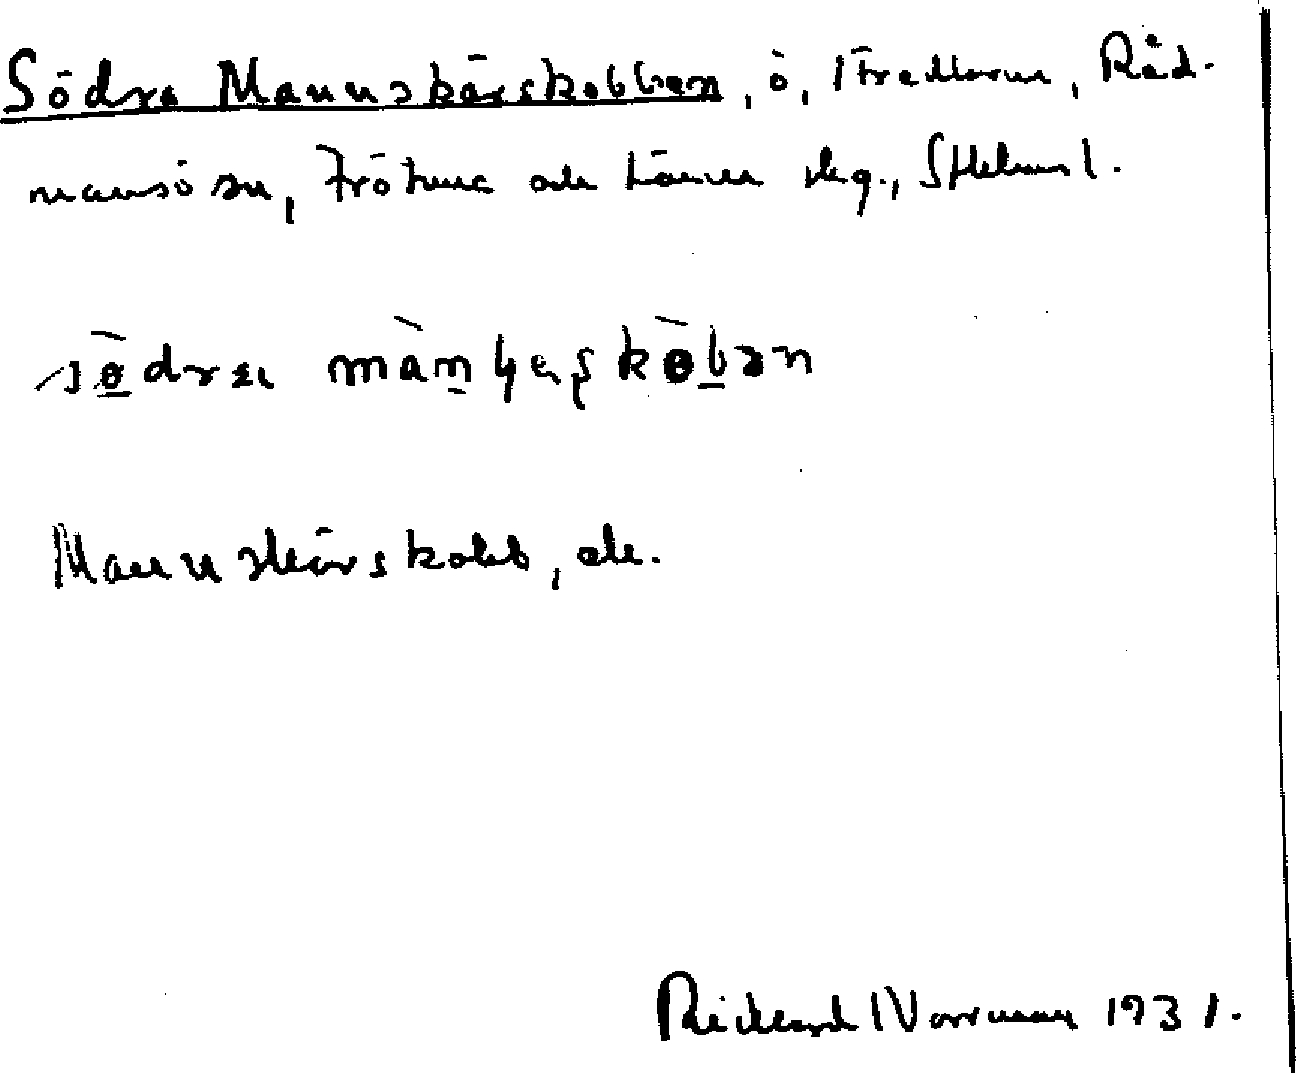 Södra Mannskärskobben, ö, Fredlarna, Råd-
mansö sn, Frötuna och Länna skg., Sthlms l.
södra
Mannskärskobb, ek.
Rickard Norrman 1931.